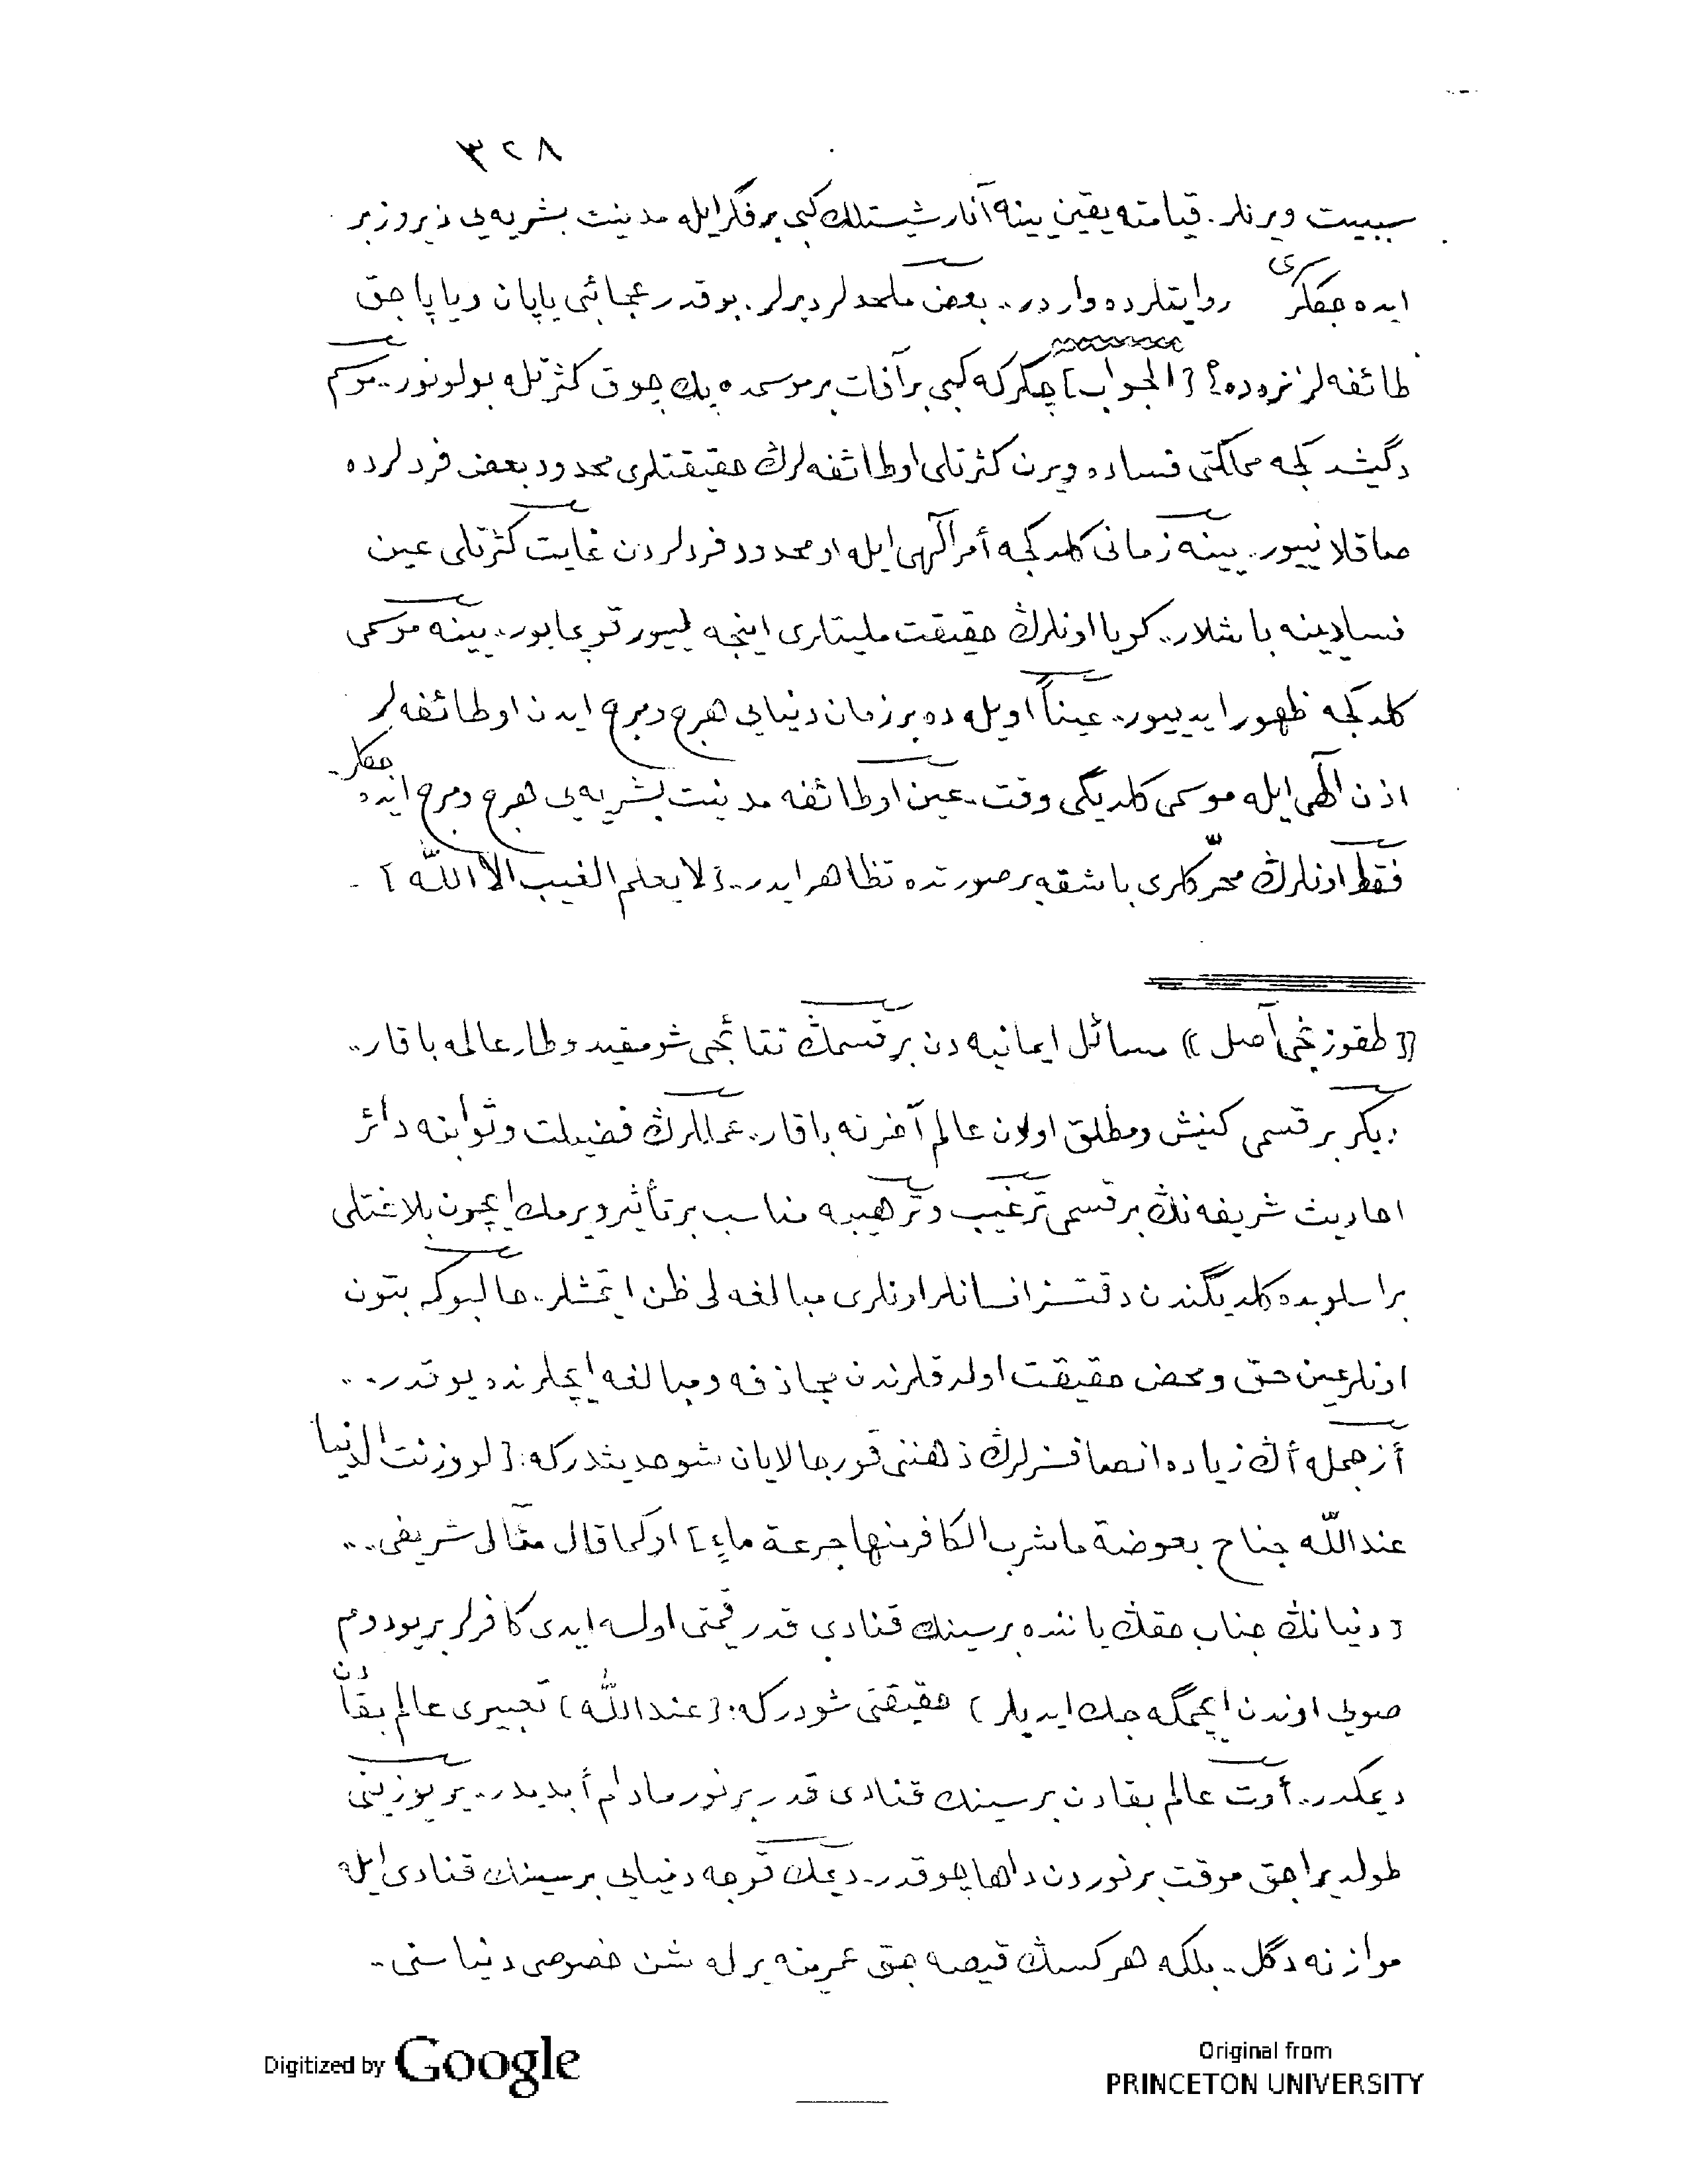 ٣٢٨
سببيت ويرنلر. قيامته يقين ينه آنارشيستلك كبى بر فكر ايله مدنيت بشريه يى زير و زبر
ايده جكلرى روايتلرده وار در.. بعض ملحدلر ديرلر. بو قدر عجائبى ياپان و ياپاجق
طائفه لر نره ده؟ [الجواب] چكركه كبى بر آفات بر موسمده پك چوق كثرتله بولونور.. موسم
دگيشدكجه مملكتى فساده ويرن كثرتلى او طائفه لرڭ حقيقتلرى محدود بعض فردلرده
صاقلانييور.. ينه زمانى كلدكجه أمر الٓهى ايله او محدود فردلردن غايت كثرتلى عين
فسادينه باشلار.. كويا اونلرڭ حقيقت مليتلرى اينجه لييور قوپمايور.. ينه موسمى
كلدكجه ظهور ايدييور.. عيناً اويله ده بر زمان دنيايى هرج و مرج ايدن او طائفه لر
اذن الٓهى ايله موسمى كلديگى وقت.. عين او طائفه مدنيت بشريه يى هرج و مرج ايده جكلر..
فقط اونلرڭ محرّكلرى باشقه بر صورتده تظاهر ايدر.. [لا يعلم الغيب الا الله]
[طقوزنجى أصل] مسائل ايمانيه دن بر قسمڭ نتائجى شو مقيد و طار عالمه باقار..
ديگر بر قسمى گنيش و مطلق اولان عالم آخرته باقار.. عمللرڭ فضيلت و ثوابنه دائر
احاديث شريفه نڭ بر قسمى ترغيب و ترهيبه مناسب بر تأثير ويرمك ايچون بلاغتلى
بر اسلوبده كلديگندن دقتسز انسانلر اونلرى مبالغه لى ظن ايتمشلر.. حالبوكه بتون
اونلر عين حق و محض حقيقت اولدقلرندن مجازفه و مبالغه ايچلرنده يوقدر..
أزجمله أڭ زياده انصافسزلرڭ ذهننى قورجالايان شو حديثدركه: [لو وزنت الدنيا
عند الله جناح بعوضة ما شرب الكافر منها جرعة ماءٍ] او كما قال مثال شريفى..
[دنيانڭ جناب حقڭ ياننده بر سينك قنادى قدر قيمتى اولسه ايدى كافرلر بر يودوم
صويى اوندن ايچميه جك ايديلر] حقيقتى شودركه: [عند الله] تعبيرى عالم بقادن
ديمكدر.. أوت عالم بقادن بر سينك قنادى قدر بر نور مادام أبديدر.. ير يوزينى
طولديراجق موقت بر نوردن داها چوقدر.. ديمك قوجه دنيايى بر سينك قنادى ايله
موازنه دگل.. بلكه هر كسڭ قيصه جق عمرينه يرله شن خصوصى دنياسنى..
Digitized by Google
Original from
PRINCETON UNIVERSITY